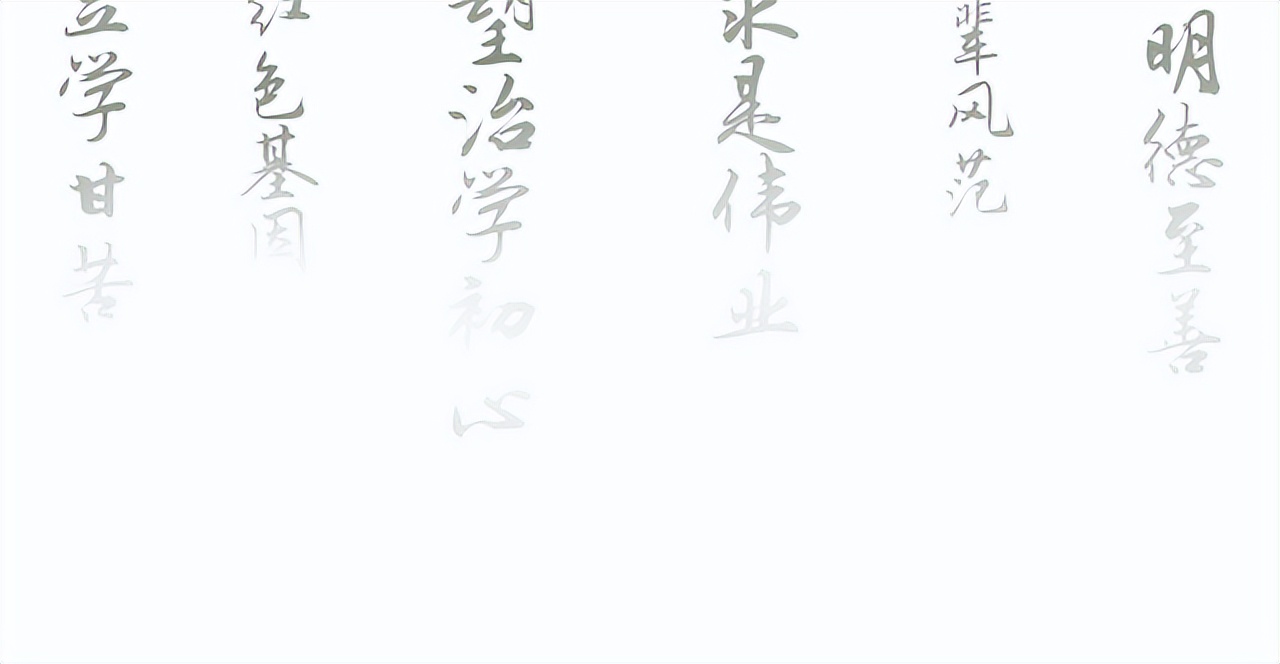 明德至善
辈风范
求是伟业
望治学初心
红色基因
学甘苦